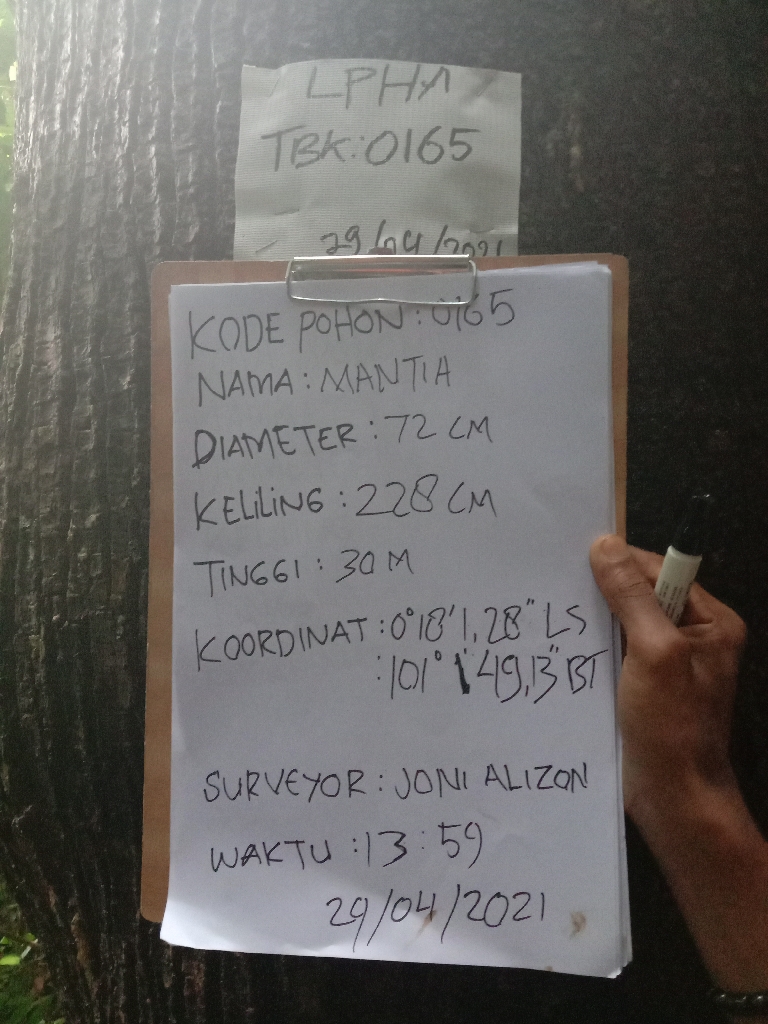 LPHA
TBK:0165
29/04/2021
KODE POHON : 0165
NAMA : MANTIA
DIAMETER : 72 CM
KELILING : 228 CM
TINGGI : 30 M
KOORDINAT : 0°18'1,28" LS
: 101° 1' 49,13" BT
SURVEYOR : JONI ALIZON
WAKTU : 13 : 59
29/04/2021